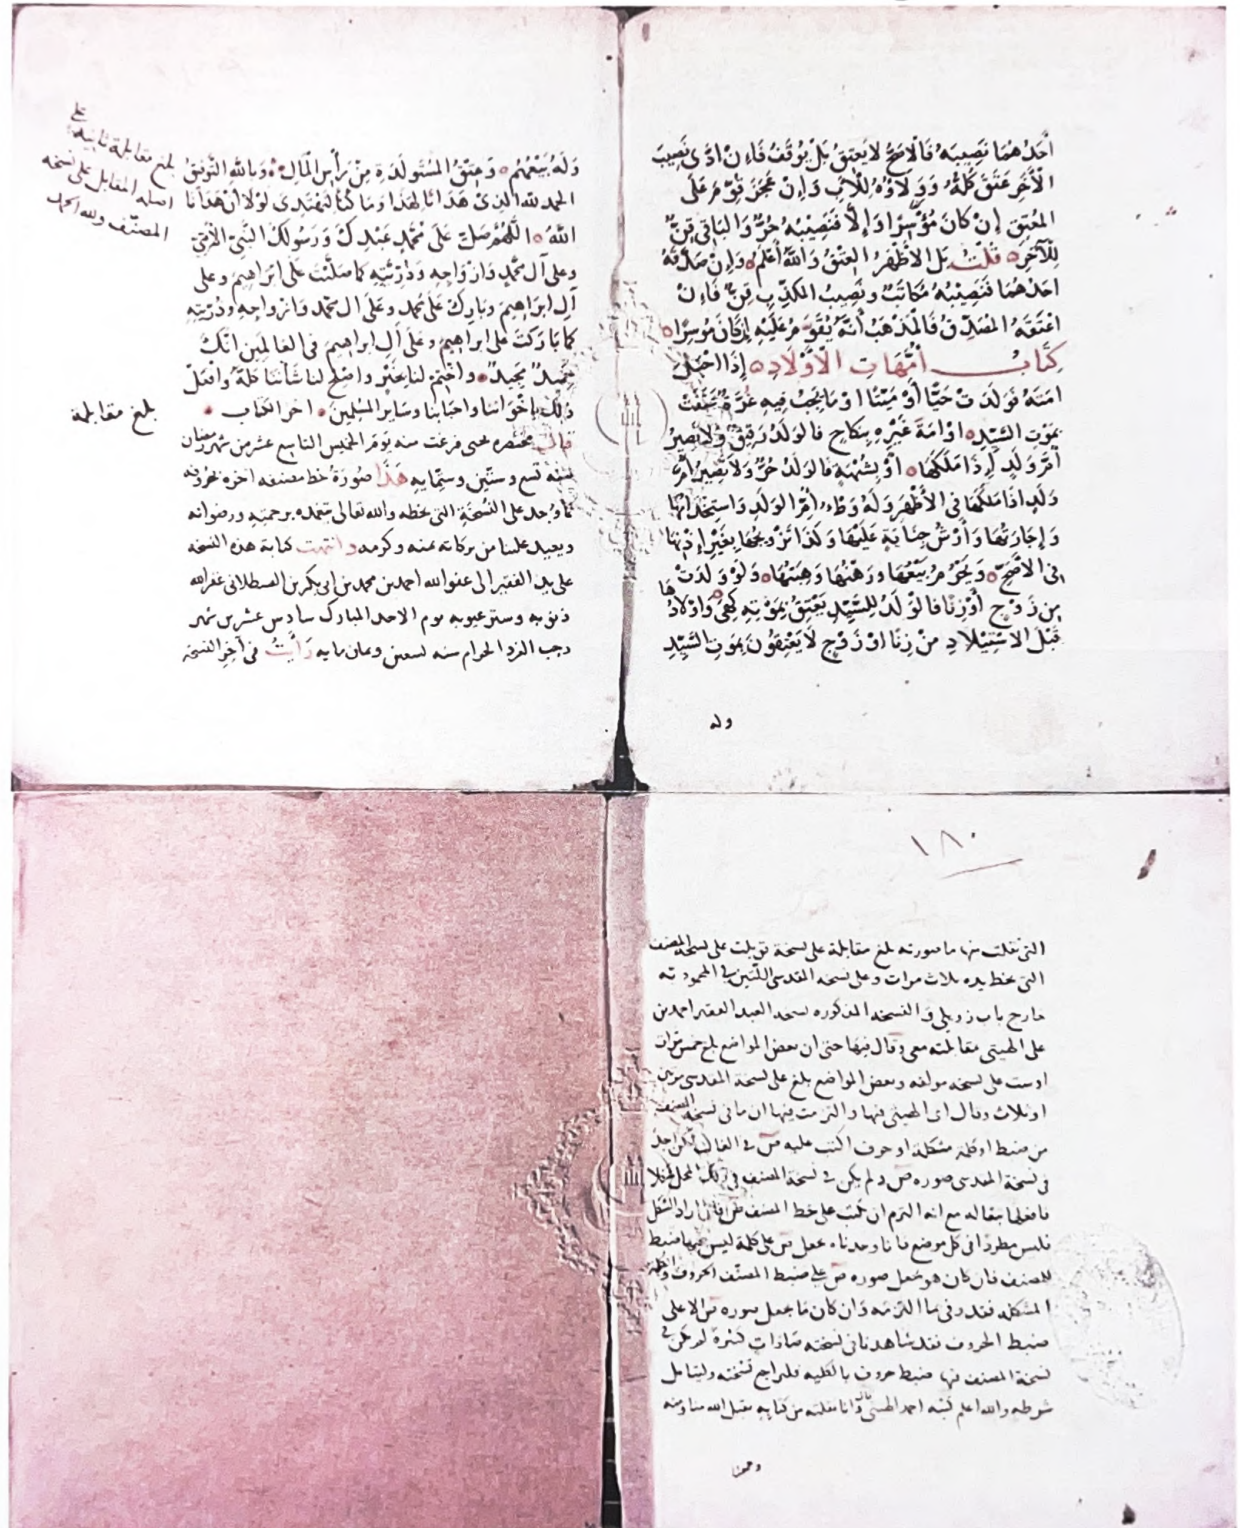 أَحَدُهُمَا نَصِيبَهُ فَالْأَصَحُّ لَا يَعْتِقُ بَلْ يُوقَفُ فَاِنْ اَدَّى نَصِيبَ
الْآخَرِ عَتَقَ كُلُّهُ وَوَلَاؤُهُ لِلْأَبِ وَاِنْ عَجَزَ قُوِّمَ عَلَى
المُعْتِقِ اِنْ كَانَ مُوْسِرًا وَاِلَّا فَنَصِيْبُهُ حُرٌّ وَالبَاقِى قِنٌّ
لِلْآخَرِ قُلْتُ بَلِ الْأَظْهَرُ العِتْقُ وَاللّٰهُ أَعْلَمُ وَاِنْ صَدَّقَهُ
احَدُهُمَا فَنَصِيْبُهُ مُكَاتَبٌ ونَصِيبُ المكَذِّبِ قِنٌّ فَاِنْ
اعْتَقَهُ المُصَدِّقُ فَالْمَذْهَبُ أَنَّهُ يُقَوَّمُ عَلَيْهِ اِنْ كَانَ مُوسِرًا
كِتَابُ أُمَّهَاتِ الْأَوْلَادِ اِذَا احْبَلَ
امَتَهُ فَوَلَدَتْ حَيًّا أَوْ مَيِّتًا اوْ مَا يَجِبُ فِيهِ غُرَّةٌ عَتَقَتْ
بِمَوْتِ السَّيِّدِ اوْ امَةَ غَيْرِهِ بِنِكَاحٍ فالوَلَدُ رَقِيقٌ وَلَا تَصِيرُ
أُمَّ وَلَدٍ اِذَا مَلَكَهَا أَوْ بِشُبْهَةٍ فَالوَلَدُ حُرٌّ وَلَا تَصِيرُ أُمَّ
وَلَدٍ اذَا مَلَكَهَا فى الأَظْهَرِ وَلَهُ وَطْءُ أُمِّ الوَلَدِ وَاسْتِخْدَامُهَا
وَاِجَارَتُهَا وَأَرْشُ جِنَايَةٍ عَلَيْهَا وَكَذَا تَزْوِيجُهَا بِغَيْرِ اِذْنِهَا
فِى الْأَصَحِّ وَيَحْرُمُ بَيْعُهَا ورَهْنُهَا وَهِبَتُهَا وَلَوْ وَلَدَتْ
مِنْ زَوْجٍ أَوْ زِنًا فالْوَلَدُ لِلسَّيِّدِ يَعْتِقُ بِمَوْتِهِ كَهِىَ وَاوْلَادُهَا
قَبْلَ الِاسْتِيْلَادِ مِنْ زِنًا اوْ زَوْجٍ لَا يَعْتِقُونَ بِمَوتِ السَّيِّدِ
وله
وَلَهُ بَيْعُهُمْ وَعِتْقُ المُسْتَولَدَةِ مِنْ رَأْسِ الْمَالِ وَبِاللّٰهِ التَّوفيقُ
الحمد للّٰه الذِىْ هَدَانَا لِهٰذَا وَمَا كُنَّا لِنَهْتَدِىَ لَوْلَا أَنْ هَدَانَا
اللّٰهُ اللّٰهُمَّ صَلِّ عَلَى مُحَمَّدٍ عَبْدِكَ وَرَسُولِكَ النَّبِىِّ الأُمِّىِّ
وعلى آل محَمَّدٍ وَازْوَاجِهِ وَذُرِّيَّتِهِ كما صَلَّيْتَ عَلَى ابْرَاهِيمَ وعلى
آلِ ابرَاهِيمَ وبَارِكْ عَلَى مُحَمد وعَلَى ال مُحَمَّد وَازواجِهِ وذُرِّيَّتِهِ
كما بَارَكْتَ عَلى ابراهِيمَ وعَلى آلِ ابراهِيمَ فى العَالَمِينَ انَّكَ
حَمِيدٌ مَجِيدٌ واخْتِمْ لنا بِخَيْرٍ واصْلِحْ لنا شَأْنَنَا كلَّهُ وافْعَلْ
ذلِكَ بِاِخْوَانِنَا واحبَابِنَا وسَايِرِ المسْلِمِينَ اخر الكتاب
قال مختصره يحيى فرغت منه يَوْمَ الخميس التاسع عشر من شهر رمضان
سنة تسع وستين وستمايه هَذَا صُورَةُ خط مصنفه اخره بحروفه
كما وُجد على النُّسْخَةِ التى بخطه والله تعالى يتغمده برحمته ورضوانه
ويعيد علينا من بركاته بمنه وكرمه وانتهت كتابة هذه النسخه
على يد الفقير الى عفو الله احمد بن محمد بن ابى بكر بن القسطلانى غفر الله
ذنوبه وستر عيوبه يوم الاحد المبارك سادس عشرين شهر
رجب الفرد الحرام سنه تسعين وثمان مايه رَأَيْتُ فى آخِر النسخة
بلغ مقابلة ثانيه على
اصله المقابل على نسخه
المصنّف ولله الحمد
بلغ مقابلة
١٨٠
التى نقلت منها ما صورته بلغ مقابلة على نسخة قوبلت على نسخة المصنف
التى بخط يده ثلاث مرات وعلى نسخه المقدسى اللتين فى المحموديه
خارج باب زويلى والنسخه المذكوره نسخه العبد الفقير احمد بن
على الهيتمى مقابلته معى وقال فيها حتى ان بعض المواضع بلغ خمس مرات
اوست على نسخه مولفه وبعض المواضع بلغ على نسخة المقدسى مرتين
او ثلاث وقال اى الهيتمى فيها والتزمت فيها ان ما فى نسخة المصنف
من ضبط او كلمة مشكلة او حرف اكتب عليه ص فى الغالب
فى نسخة المقدسى صوره ص ولم يكن فى نسخة المصنف فى ذلك المحل
مع انه التزم ان يكتب على خط المصنف
فليس مطردًا فى كل موضع فانا وجدناه جعل ص على كلمة ليس فيها ضبط
للمصنف فان كان هو يجعل صوره ص على ضبط المصنّف الحروف
المشكله فقد وفى بما التزمه وان كان ما يجعل صوره ص الا على
ضبط الحروف فقد شاهدنا فى نسخته صادات كثيرة لم يكن فى
نسخة المصنف فيها ضبط حروف بالكليه فليراجع نسخته وليتامل
شرطه والله اعلم كتبه احمد الهيتمى وانا نقلته من كتابه تقبل الله منا ومنه